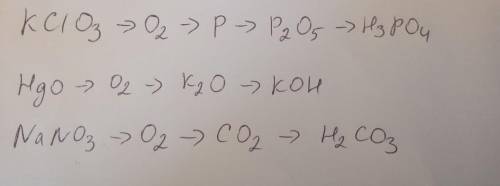 KClO₃ → O₂ → P → P₂O₅ → H₃PO₄
HgO → O₂ → K₂O → KOH
NaNO₃ → O₂ → CO₂ → H₂CO₃